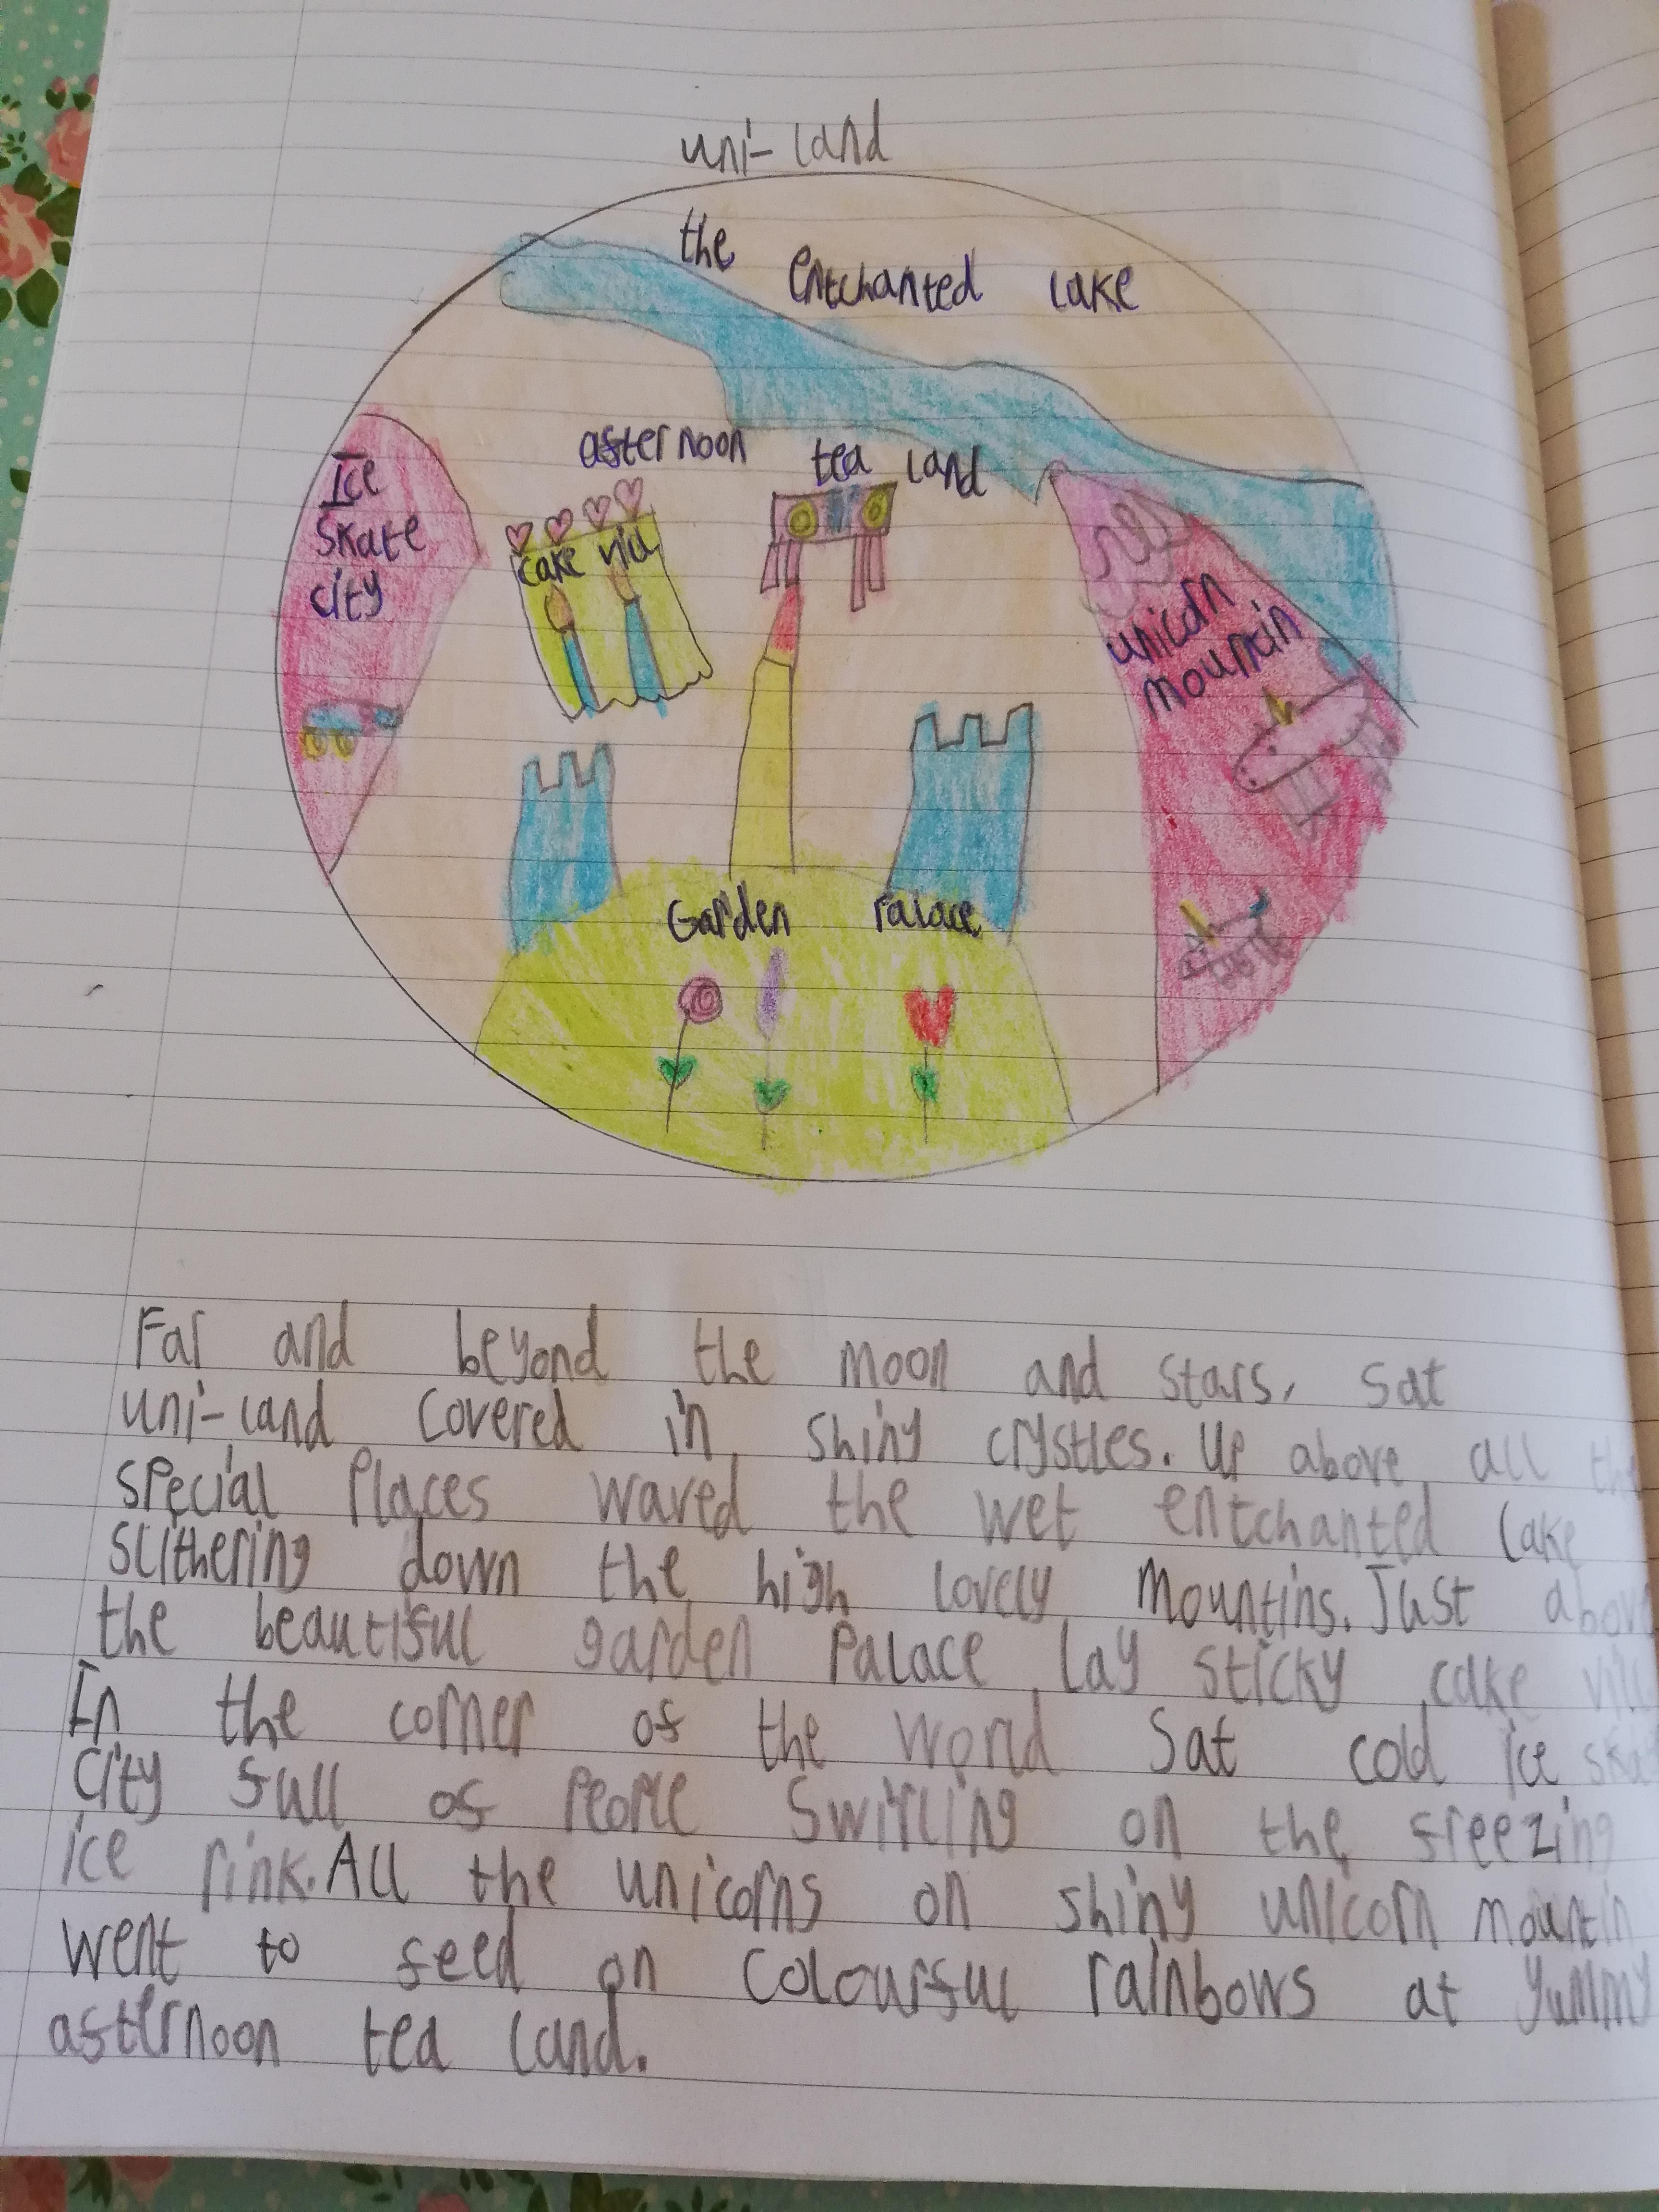 uni-land
the entchanted lake
afternoon tea land
Ice
skate
city
cake vill
unicorn
mountin
Garden Palace
Far and beyond the moon and stars, sat
uni-land covered in shiny crystles. Up above all the
special places waved the wet entchanted lake
slithering down the high lovely mountins. Just above
the beautiful garden palace lay sticky cake vill
In the corner of the world sat cold ice skat
city full of people swirling on the freezing
ice rink. All the unicorns on shiny unicorn mountin
went to feed on colourful rainbows at yummy
afternoon tea land.